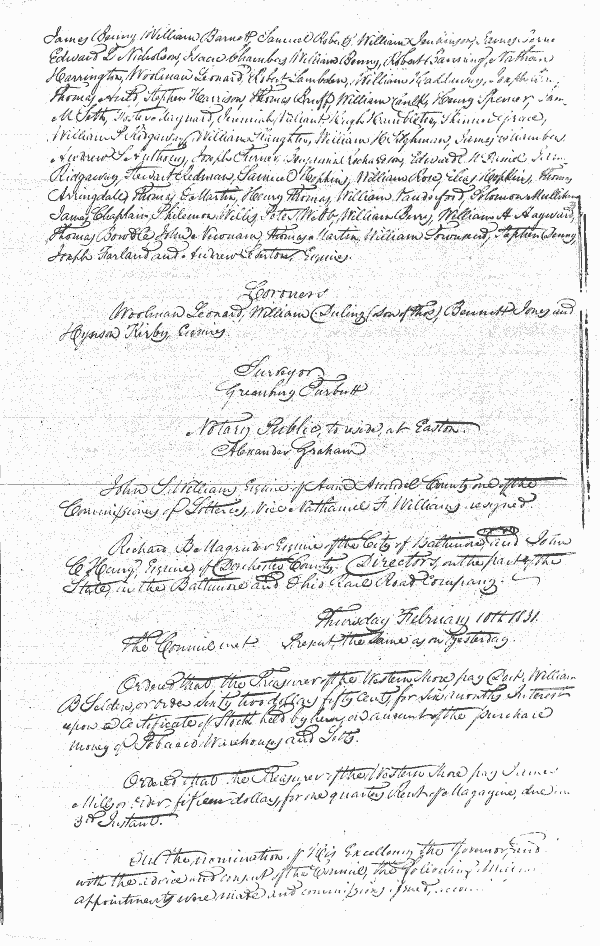 James Benny William Barnett Samuel Roberts William Jenkinson, James
Edward D Nicholson, Isaac Chambers William Benny, Robert Nathan
Harrington, Woolman Leonard, Robert Lambden, William Haddaway, Joseph
Thomas Auld, Stephen Harrison Thomas Bruff, William Caulk, Henry Spencer,
M Seth, Hayward, Jeremiah Valliant Hugh Hambleton, Skinner Grace,
William P Ridgaway, William Slaughter, William H Tilghman, James
Andrew S Anthony, Joseph Turner, Edward
Ridgaway, Stewart Redman, Samuel Hopkins, William Rose, Eli Hopkins, Thomas
Arringdale, Thomas E Martin, Henry Thomas, William Vanderford, Solomon Mullikin,
James Chaplain, Philemon Willis, Peter Webb, William Berry, William A Hayward,
Thomas Bowdle John Newnam, Thomas Martin, William Townsend, Stephen Denny
Joseph Farland, and Andrew Esquires.
Coroners
Woolman Leonard, William Duling (son of Thos) Bennett Jones and
Hynson Kirby Esquires.
Surveyor
Greenbury Turbutt
Notary Public, to reside at Easton.
Alexander Graham
John S. Williams, Esquire of Anne Arundel County one of the
Commissioners of Lotteries, Vice Nathaniel F Williams resigned.
Richard B Magruder Esquire of the City of Baltimore, and John
C Henry, Esquire, of Dorchester County. Directors, on the part of the
State, in the Baltimore and Ohio Rail Road Company.
Thursday February 10th 1831.
The Council met. Present, the same as on yesterday.
Ordered that the Treasurer of the Western Shore pay Doct. William
B. Selden, or order Sixty two dollars fifty cents for six months Interest
upon a Certificate of Stock held by him on account of the purchase
money of Tobacco Warehouses and Lots.
Ordered that the Treasurer of the Western Shore pay James
Mills or order fifteen dollars, for one quarters rent of Magazine, due
3rd Instant.
On the nomination of His Excellency the Governor, and
with the advice and consent of the Council the following
appointments were made and commissions issued,